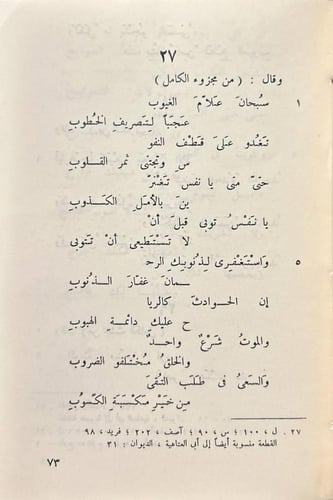 ٢٧
وقال : ( من مجزوء الكامل )
١ سُبحانَ عَلّامَ الغيوبِ
عَجَبًا لِتَصريفِ الخُطوبِ
تَغدُو عَلىَ قَطفِ النفو
سِ وتجتنى ثمر القلوبِ
حتّى متى يا نفس تَغْتَرّ
ينَ بالأملِ الكذوبِ
يا نَفْسُ توبى قبلَ أنْ
لا تستطيعى أنْ تتوبى
٥ واستغفِرى لِذنوبكِ الرحـ
ـمانَ غفّارَ الذنوبِ
إن الحوادثَ كالريا
ح عليكِ دائمةِ الهبوبِ
والموتُ شَرْعٌ واحدٌ
والخلقُ مُختلفو الضروبِ
والسّعىُ فى طلَبِ التقَى
مِن خَيرِ مكسَبَةِ الكسوبِ
٢٧ . ل ، ١٠٠ ؛ س ، ٩٠ ؛ آصف ، ٢٠٢ ؛ فريد ، ٩٨
القطعة منسوبة أيضاً إلى أبى العتاهية ، الديوان : ٣١
٧٣